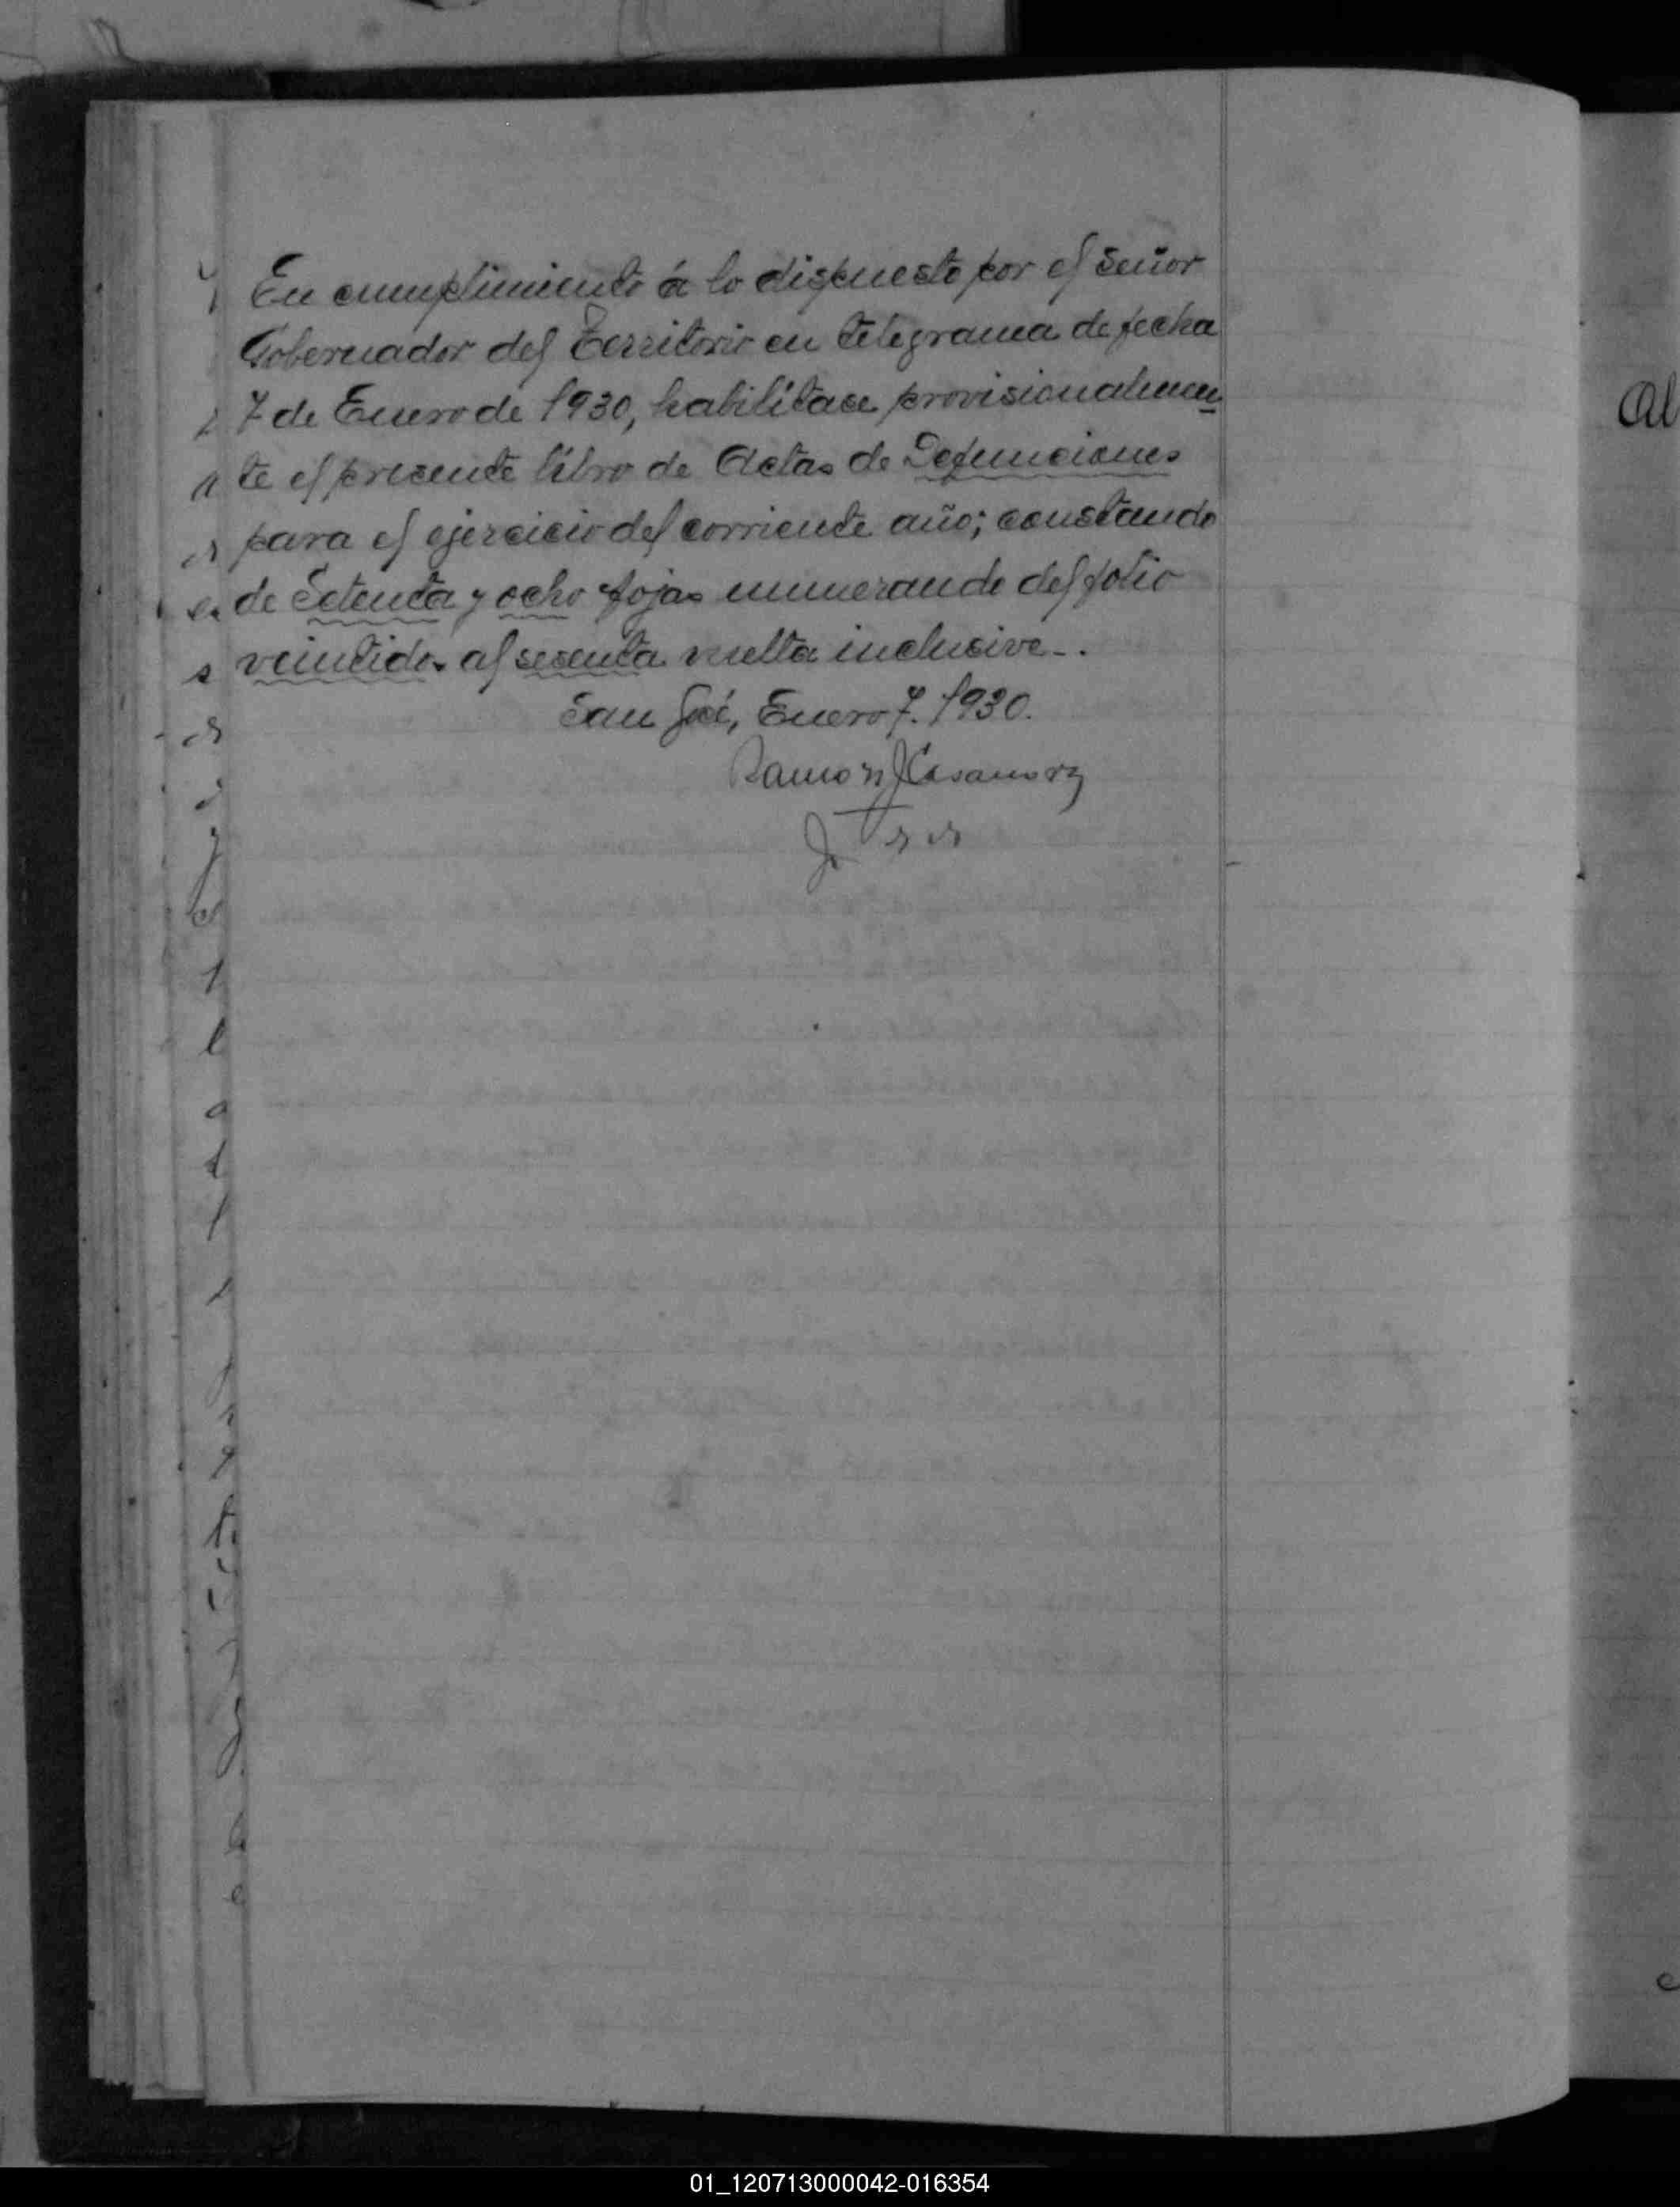 En cumplimiento á lo dispuesto por el Señor
Gobernador del Territorio en telegrama de fecha
7 de Enero de 1930, habilítase provisionalmen
te el presente libro de Actas de Defunciones
para el ejercicio del corriente año; constando
de Setenta y ocho fojas numerando del folio
veintidos al sesenta vuelta inclusive-.
San José, Enero 7. 1930.
Ramon J Casanova
Al
01_120713000042-016354